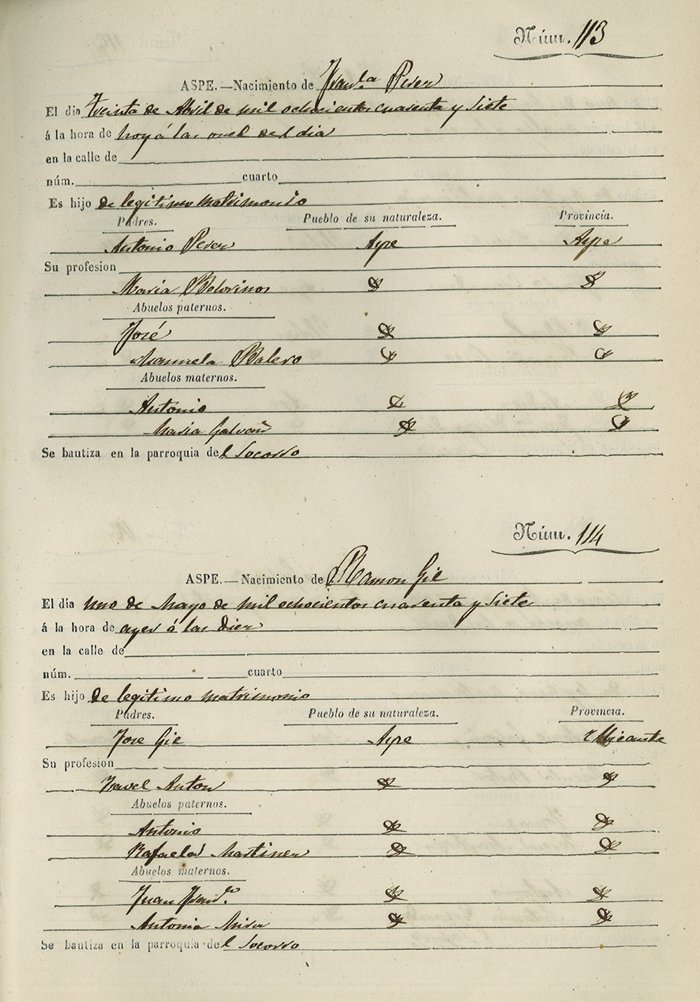 Núm. 113
ASPE.—Nacimiento de Fran.ca Perez
El dia Treinta de Abril de mil ochocientos cuarenta y siete
á la hora de hoy á las once del dia
en la calle de
núm. cuarto
Es hijo de legitimo matrimonio
Padres. Pueblo de su naturaleza. Provincia.
Antonio Perez Aspe Aspe
Su profesion
Maria
Abuelos paternos.
José
Manuela Balero
Abuelos maternos.
Antonio
Maria Galvañ
Se bautiza en la parroquia del Socorro
Núm. 114
ASPE.—Nacimiento de Ramon Gil
El dia uno de Mayo de mil ochocientos cuarenta y siete
á la hora de ayer á las diez
en la calle de
núm. cuarto
Es hijo de legitimo matrimonio
Padres. Pueblo de su naturaleza. Provincia.
Jose Gil Aspe Alicante
Su profesion
Isavel Anton
Abuelos paternos.
Antonio
Rafaela Martinez
Abuelos maternos.
Juan Fran.co
Antonia Mira
Se bautiza en la parroquia del Socorro